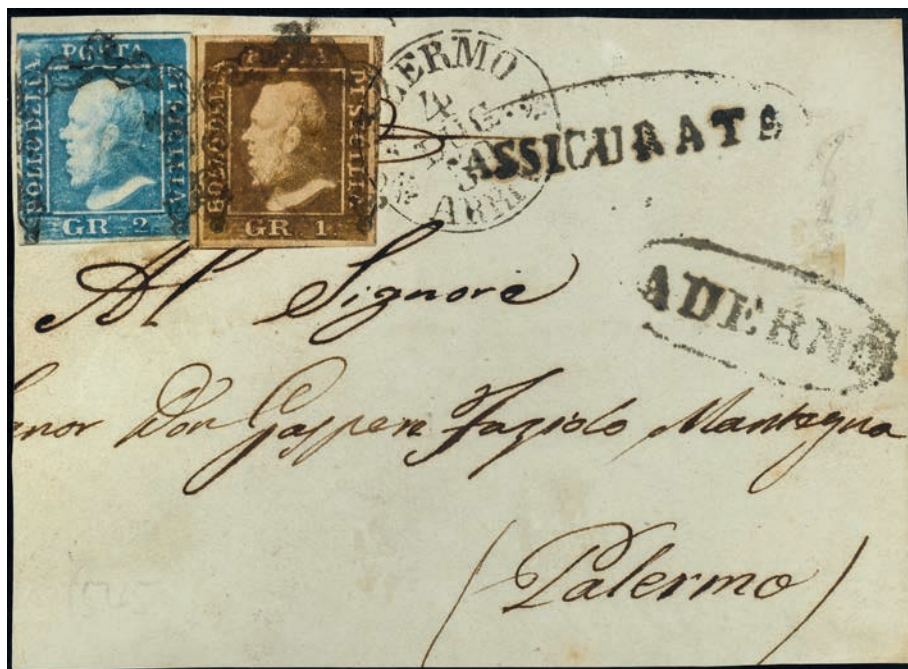 BOLLO DELLA POSTA DI SICILIA
GR. 2
BOLLO DELLA DI SICILIA
GR. 1
PALERMO
4
LUG.
ARRI
ASSICURATO
ADERNÒ
Al Signore
Don Gaspare Fagiolo Mantegna
Palermo